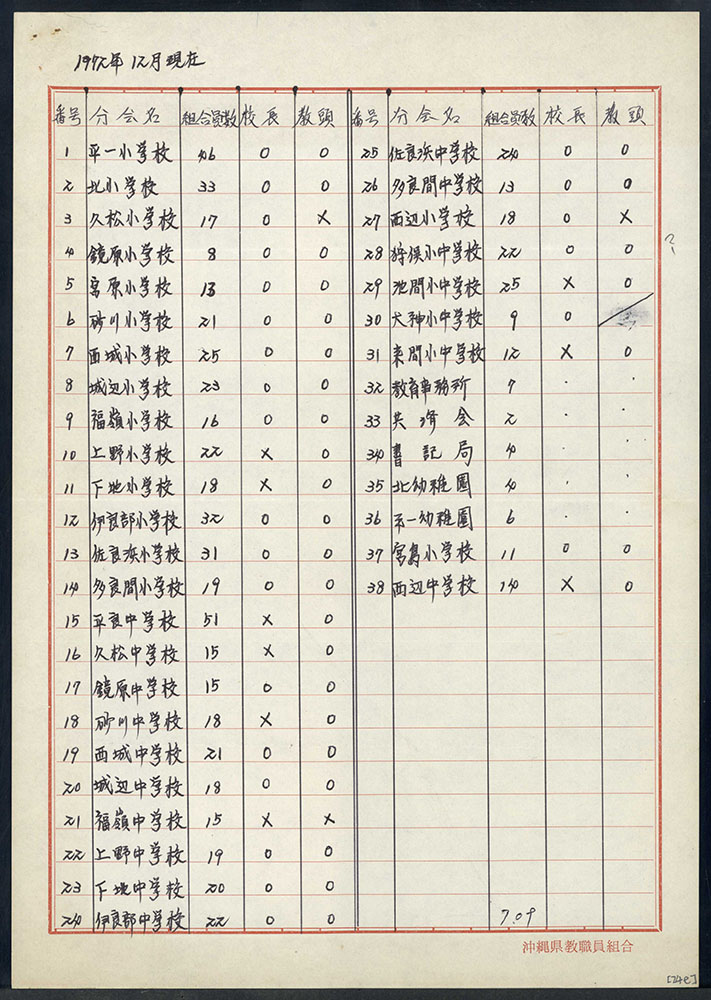 1972年 12月現在
番号 分会名 組合員数 校長 教頭
1 平一小学校 46 0 0
2 北小学校 33 0 0
3 久松小学校 17 0 ×
4 鏡原小学校 8 0 0
5 宮原小学校 13 0 0
6 砂川小学校 21 0 0
7 西城小学校 25 0 0
8 城辺小学校 23 0 0
9 福嶺小学校 16 0 0
10 上野小学校 22 × 0
11 下地小学校 18 × 0
12 伊良部小学校 32 0 0
13 佐良浜小学校 31 0 0
14 多良間小学校 19 0 0
15 平良中学校 51 × 0
16 久松中学校 15 × 0
17 鏡原中学校 15 0 0
18 砂川中学校 18 × 0
19 西城中学校 21 0 0
20 城辺中学校 18 0 0
21 福嶺中学校 15 × ×
22 上野中学校 19 0 0
23 下地中学校 20 0 0
24 伊良部中学校 22 0 0
番号 分会名 組合員数 校長 教頭
25 佐良浜中学校 24 0 0
26 多良間中学校 13 0 0
27 西辺小学校 18 0 ×
28 狩俣小中学校 22 0 0
29 池間小中学校 25 × 0
30 大神小中学校 9 0
31 来間小中学校 12 × 0
32 教育事務所 7 · ·
33 共済会 2 · ·
34 書記局 4 · ·
35 北幼稚園 4 · ·
36 平一幼稚園 6 · ·
37 宮島小学校 11 0 0
38 西辺中学校 14 × 0
709
沖縄県教職員組合